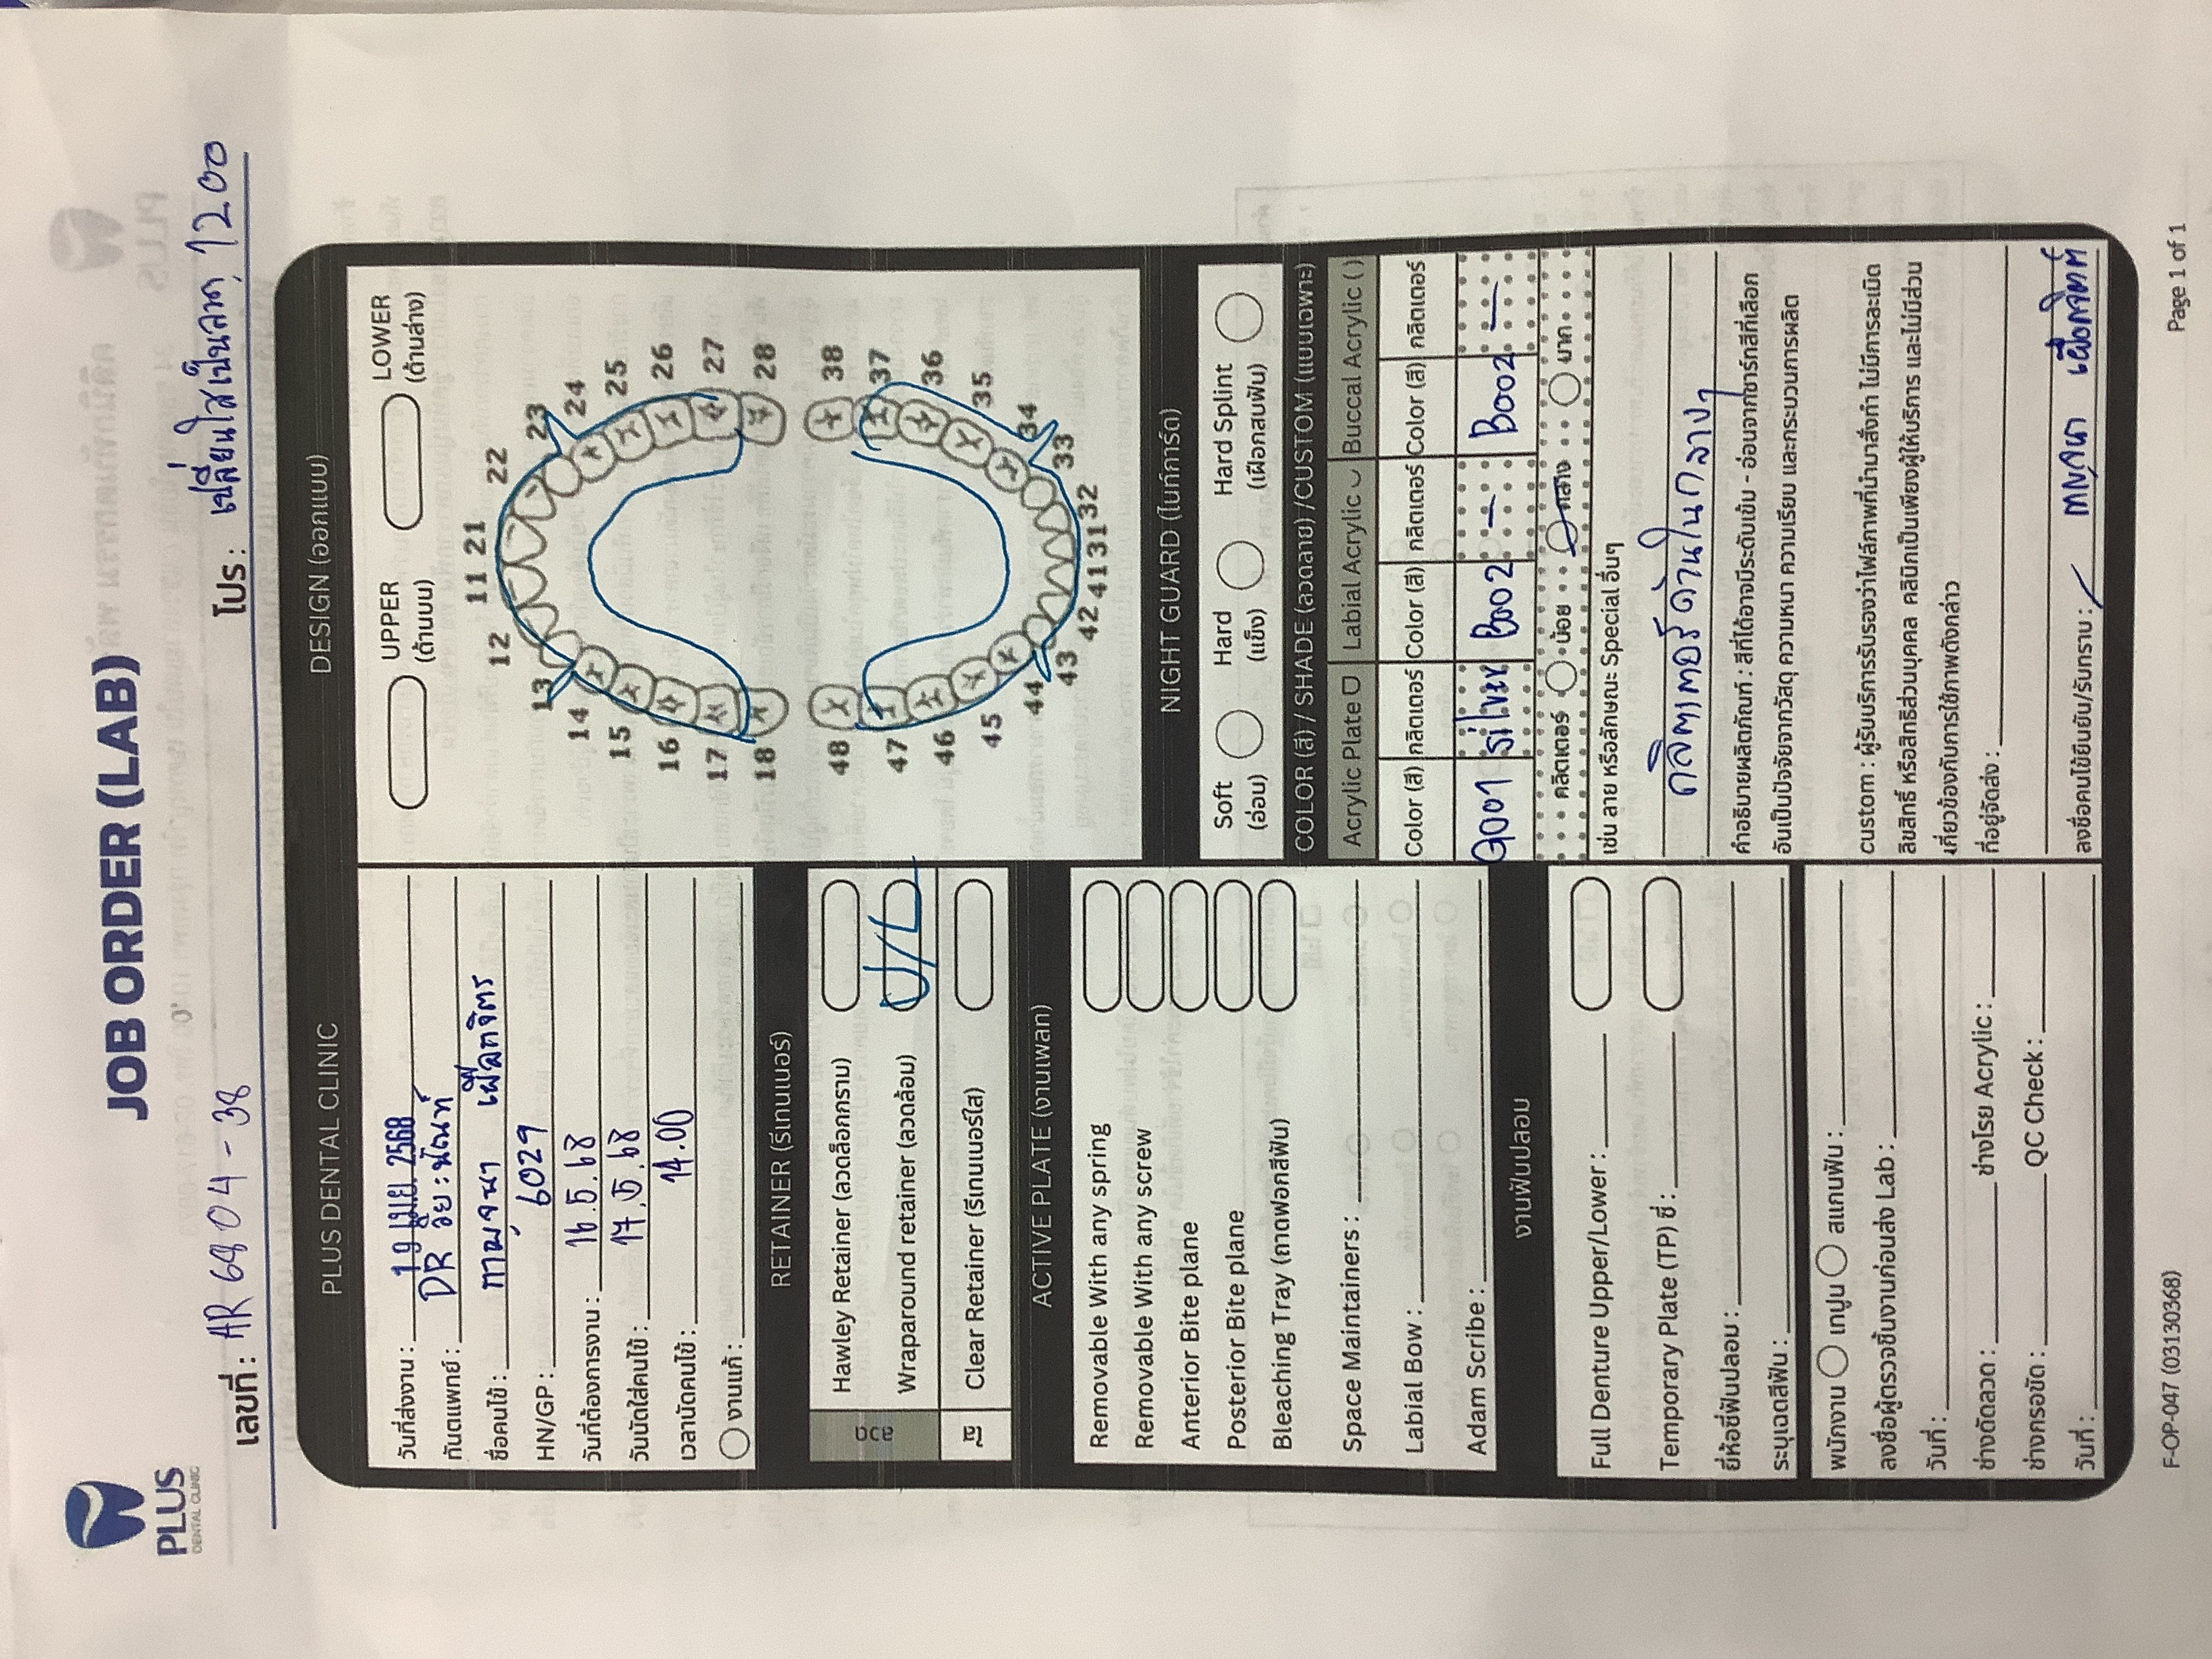 PLUS
DENTAL CLINIC
JOB ORDER (LAB)
เลขที่ : AR 6804 - 38
โปร : เปลี่ยนใสเป็นลวด 1200
PLUS DENTAL CLINIC
วันที่ส่งงาน : 19 เม.ย. 2568
ทันตแพทย์ : DR
ชื่อคนไข้ : กาญจนา เผือกจิตร
HN/GP : 6029
วันที่ต้องการงาน : 16.5.68
วันนัดใส่คนไข้ : 17.5.68
เวลานัดคนไข้ : 14.00
งานแก้ :
RETAINER (รีเทนเนอร์)
ลวด
Hawley Retainer (ลวดล็อกกราม)
Wraparound retainer (ลวดล้อม) U/L
ใส
Clear Retainer (รีเทนเนอร์ใส)
ACTIVE PLATE (งานเพลท)
Removable With any spring
Removable With any screw
Anterior Bite plane
Posterior Bite plane
Bleaching Tray (ถาดฟอกสีฟัน)
Space Maintainers :
Labial Bow :
Adam Scribe :
งานฟันปลอม
Full Denture Upper/Lower :
Temporary Plate (TP) ซี่ :
ยี่ห้อซี่ฟันปลอม :
ระบุเฉดสีฟัน :
พนักงาน เทปูน สแกนฟัน :
ลงชื่อผู้ตรวจชิ้นงานก่อนส่ง Lab :
วันที่ :
ช่างดัดลวด : ช่างโรย Acrylic :
ช่างกรอขัด : QC Check :
วันที่ :
DESIGN (ออกแบบ)
UPPER (ด้านบน)
LOWER (ด้านล่าง)
11 21
12 22
13 23
14 24
15 25
16 26
17 27
18 28
48 38
47 37
46 36
45 35
44 34
43 33
42 41 31 32
NIGHT GUARD (ไนท์การ์ด)
Soft (อ่อน)
Hard (แข็ง)
Hard Splint (เฝือกสบฟัน)
COLOR (สี) / SHADE (ลวดลาย) /CUSTOM (แบบเฉพาะ)
Acrylic Plate Labial Acrylic Buccal Acrylic ( )
Color (สี) กลิตเตอร์ Color (สี) กลิตเตอร์ Color (สี) กลิตเตอร์
G001 silver B002 — B002 —
กลิตเตอร์ น้อย กลาง มาก
เช่น ลาย หรือลักษณะ Special อื่นๆ
กลิตเตอร์ด้านในกลางๆ
คำอธิบายผลิตภัณฑ์ : สีที่ได้อาจมีระดับเข้ม - อ่อนจากชาร์ทสีที่เลือก
อันเป็นปัจจัยจากวัสดุ ความหนา ความเรียบ และกระบวนการผลิต
custom : ผู้รับบริการรับรองว่าไฟล์ภาพที่นำมาสั่งทำ ไม่มีการละเมิด
ลิขสิทธิ์ หรือสิทธิส่วนบุคคล คลินิกเป็นเพียงผู้ให้บริการ และไม่มีส่วน
เกี่ยวข้องกับการใช้ภาพดังกล่าว
ที่อยู่จัดส่ง :
ลงชื่อคนไข้ยืนยัน/รับทราบ : กาญจนา เผือกจิตต์
F-OP-047 (03130368)
Page 1 of 1